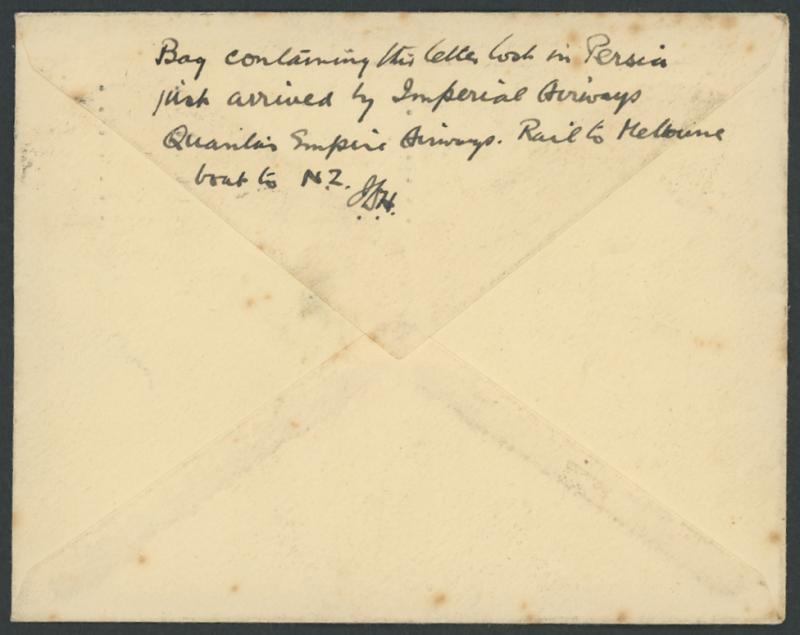 Bag containing this letter lost in Persia
just arrived by Imperial Airways
Quantas Empire Airways. Rail to Melbourne
boat to N.Z. J.S.H.